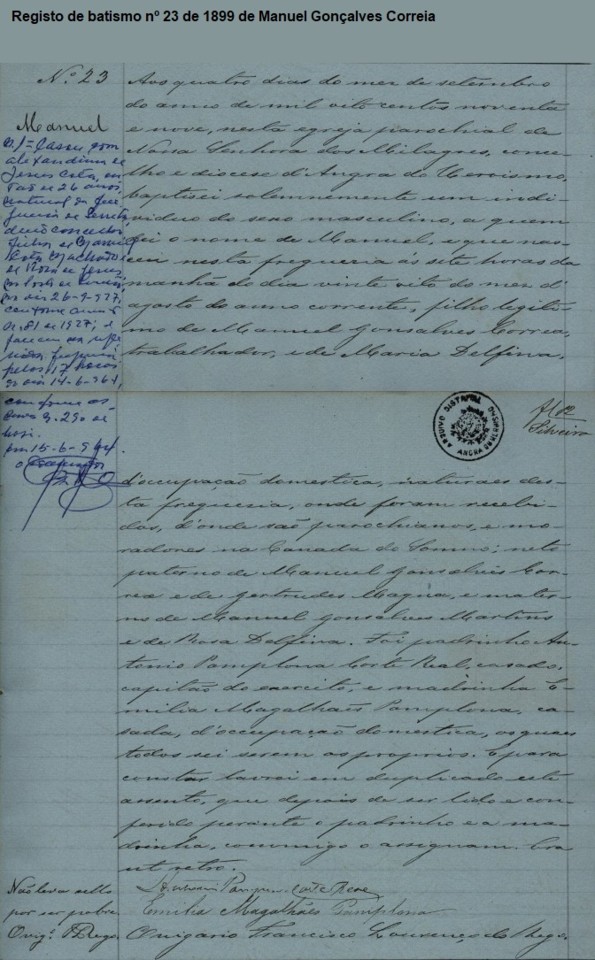 Registo de batismo nº 23 de 1899 de Manuel Gonçalves Correia
Nº 23
Manuel
Casou com
de 26 anos,
natural da fre-
guesia de
concelho
filha de
Cota Machado
e de Rosa de Jesus
no dia 26-9-927,
de 1927; e
faleceu na
pelas 17 horas
do dia 14-6-964,
conforme as-
hoje.
Em 15-6-964.
O
Aos quatro dias do mez de setembro
do anno de mil oito centos noventa
e nove, nesta egreja parochial de
Nossa Senhora dos Milagres, conce-
lho e diocese d'Angra do Heroismo,
baptisei solemnemente um indi-
viduo do sexo masculino, a quem
dei o nome de Manuel, e que nas-
ceu nesta freguesia ás sete horas da
manhã do dia vinte oito do mez d'
agosto do anno corrente, filho legiti-
mo de Manuel Gonsalves Correa,
trabalhador, e de Maria Delfina,
ARQUIVO DISTRITAL
ANGRA
Silveira
d'occupação domestica, naturaes des-
ta freguesia, onde foram recebi-
dos, d'onde são parochianos, e mo-
radores na Canada do Somno; neto
paterno de Manuel Gonsalves Cor-
rea e de Gertrudes Magna, e mater-
no de Manuel Gonsalves Martins
e de Rosa Delfina. Foi padrinho An-
tonio Pamplona Corte Real, casado,
capitão do exercito, e madrinha E-
milia Magalhães Pamplona, ca-
sada, d'occupação domestica, os quaes
todos sei serem os proprios. E para
constar lavrei em duplicado este
assento, que depois de ser lido e con-
ferido perante o padrinho e a ma-
drinha, commigo o assignam. Era
ut retro.
Não leva sello
por ser pobre
O vigº Rego.
Pamplona Corte Real
Emilia Magalhães Pamplona
O vigario Francisco Lourenço do Rego.